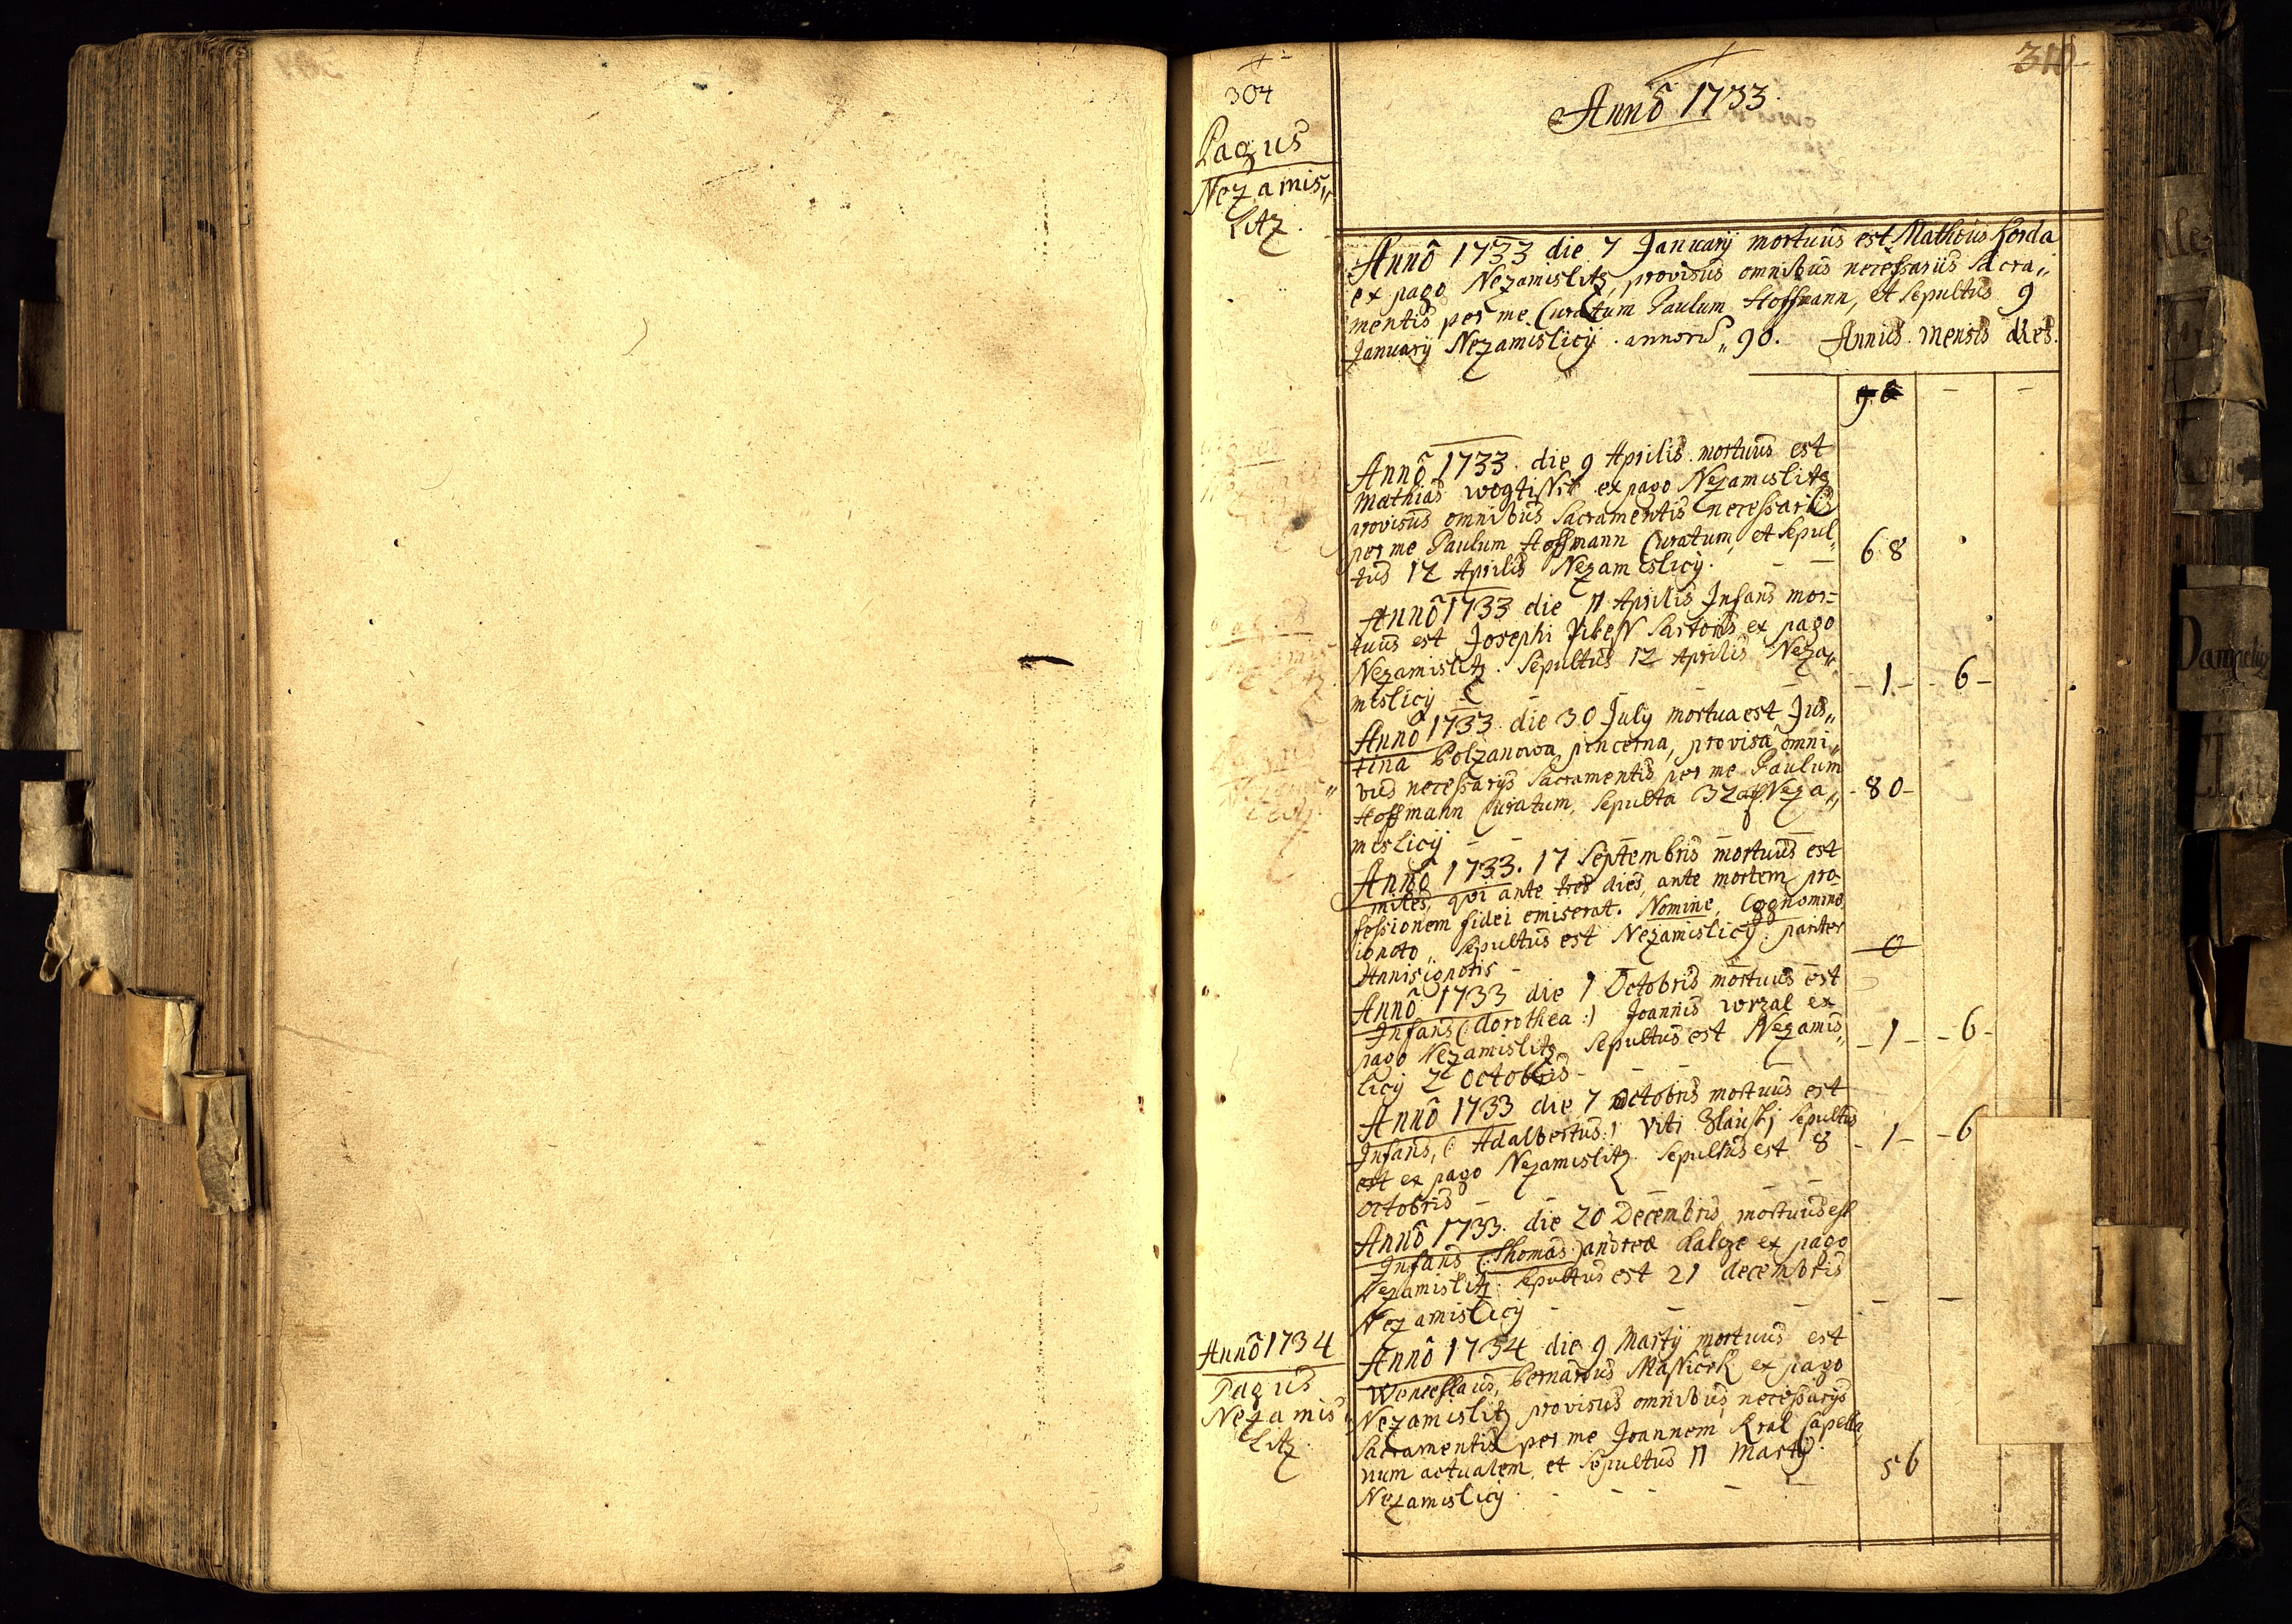 304
Pagus
Nezamis„
Litz.
310
Annô 1733.
Annô 1733 die 7 January mortuus est Matheus Korda
ex pago Nezamislitz, provisus omnibus necessariis Sacra„
mentis per me Curatum Paulum Hoffmann, et Sepultus 9
January Nezamislicy. annorũ„ 90. Annus. mensis dies.
90 - -
Annô 1733. die 9 Aprilis. mortuus est
Mathias ex pago Nezamislitz
provisus omnibus Sacramentis necessariis
per me Paulum Hoffmann Curatum, et Sepul„
tus 12 Aprilis Nezamislicy. - - 68
Annô 1733 die 11 Aprilis Infans mor=
tuus est Josephi Sartoris ex pago
Nezamislitz. Sepultus 12 Aprilis Neza„
mislicy - - - - 1 - - 6 -
Annô 1733. die 30 July mortua est Jus„
tina Polzanowa, pincerna, provisa omni„
bus necessarys Sacramentis per me Paulum
Hoffmann Curatum, Sepulta Neza„ - 80 -
mislicy - -
Annô 1733. 17 Septembris mortuus est
miles, qvi ante tres dies, ante mortem pro„
fessionem fidei emiserat. Nomine, Cognomine
ignoto„ Sepultus est Nezamislicy. pariter
Annis ignotis - 0
Annô 1733 die 1 Octobris mortuus est
Infans (: dorothea :) Joannis wrzal ex
pago Nezamislitz Sepultus est Nezamis„ - 1 - - 6 -
licy 2 Octobris - - - -
Annô 1733 die 7 Octobris mortuus est
Infans, (: Adalbertus :) Viti Sepultus
est ex pago Nezamislitz Sepultus est 8 - 1 - - 6
Octobris - - - -
Annô 1733. die 20 Decembris mortuus est
Infans (: Thomas :) andreæ ex pago
Nezamislitz. Sepultus est 21 decembris
Nezamislicy - - - - -
Annô 1734
Pagus
Nezamis„
Litz.
Annô 1734 die 9 Martij mortuus est
Wenceslaus, bernardus ex pago
Nezamislitz provisus omnibus necessarys
Sacramentis per me Joannem Kral Capella„
num actualem, et Sepultus 11 Martij. 56
Nezamislicy. - - - - -